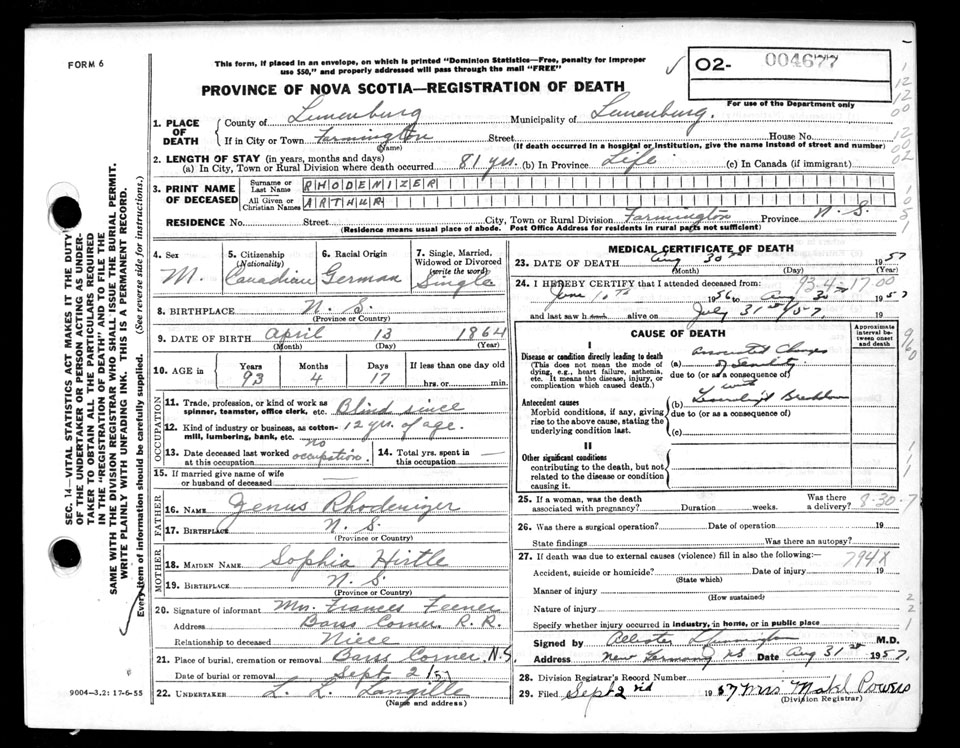 FORM 6
This form, if placed in an envelope, on which is printed "Dominion Statistics—Free, penalty for improper
use $50," and properly addressed will pass through the mail "FREE"
O2- 004677
For use of the Department only
PROVINCE OF NOVA SCOTIA—REGISTRATION OF DEATH
1. PLACE OF DEATH
County of Lunenburg Municipality of Lunenburg.
If in City or Town Farmington Street House No.
(Name) (If death occurred in a hospital or institution, give the name instead of street and number)
2. LENGTH OF STAY (in years, months and days)
(a) In City, Town or Rural Division where death occurred 81 yrs. (b) In Province Life (c) In Canada (if immigrant)
3. PRINT NAME OF DECEASED
Surname or Last Name RHODENIZER
All Given or Christian Names ARTHUR
RESIDENCE No. Street City, Town or Rural Division Farmington Province N.S.
(Residence means usual place of abode. Post Office Address for residents in rural parts not sufficient)
4. Sex M.
5. Citizenship (Nationality) Canadian
6. Racial Origin German
7. Single, Married, Widowed or Divorced (write the word) Single
8. BIRTHPLACE N. S.
(Province or Country)
9. DATE OF BIRTH April 13 1864
(Month) (Day) (Year)
10. AGE Years 93 Months 4 Days 17 If less than one day old hrs. or min.
OCCUPATION
11. Trade, profession, or kind of work as spinner, teamster, office clerk, etc. Blind since
12. Kind of industry or business, as cotton-mill, lumbering, bank, etc. 12 yrs. of age.
13. Date deceased last worked at this occupation no occupation.
14. Total yrs. spent in this occupation —
15. If married give name of wife or husband of deceased —
FATHER
16. NAME Zenus Rhodenizer
17. BIRTHPLACE N. S.
(Province or Country)
MOTHER
18. MAIDEN NAME Sophia Hirtle
19. BIRTHPLACE N. S.
(Province or Country)
20. Signature of informant Mrs. Frances Feener
Address Barss Corner. R. R.
Relationship to deceased Niece
21. Place of burial, cremation or removal Barss Corner, N.S.
Date of burial or removal Sept 2/57
22. UNDERTAKER L. L. Langille
(Name and address)
MEDICAL CERTIFICATE OF DEATH
23. DATE OF DEATH Aug 30th 1957
(Month) (Day) (Year)
93-4-17.00
24. I HEREBY CERTIFY that I attended deceased from:
June 10th 1956 to Aug 30th 1957
and last saw h alive on July 31st /57 19
CAUSE OF DEATH
Approximate interval between onset and death
I
Disease or condition directly leading to death
(This does not mean the mode of dying, e.g., heart failure, asthenia, etc. It means the disease, injury, or complication which caused death.)
(a) Changes of Senility
due to (or as a consequence of)
Antecedent causes
Morbid conditions, if any, giving rise to the above cause, stating the underlying condition last.
with
(b)
due to (or as a consequence of)
(c)
II
Other significant conditions
contributing to the death, but not related to the disease or condition causing it.
25. If a woman, was the death associated with pregnancy? Duration weeks. Was there a delivery?
8-30-7
26. Was there a surgical operation? Date of operation 19
State findings Was there an autopsy?
27. If death was due to external causes (violence) fill in also the following:—
794X
Accident, suicide or homicide? Date of injury 19
(State which)
Manner of injury
(How sustained)
Nature of injury
Specify whether injury occurred in industry, in home, or in public place
Signed by M.D.
Address New Germany NS Date Aug 31st 1957.
28. Division Registrar's Record Number
29. Filed Sept 2nd 1957 Mrs Mabl Powers
(Division Registrar)
SEC. 14—VITAL STATISTICS ACT MAKES IT THE DUTY
OF THE UNDERTAKER OR PERSON ACTING AS UNDER-
TAKER TO OBTAIN ALL THE PARTICULARS REQUIRED
IN THE "REGISTRATION OF DEATH" AND TO FILE THE
SAME WITH THE DIVISION REGISTRAR WHO SHALL ISSUE THE BURIAL PERMIT.
WRITE PLAINLY WITH UNFADING INK. THIS IS A PERMANENT RECORD.
Every item of information should be carefully supplied. (See reverse side for instructions.)
9004-3.2: 17-6-55